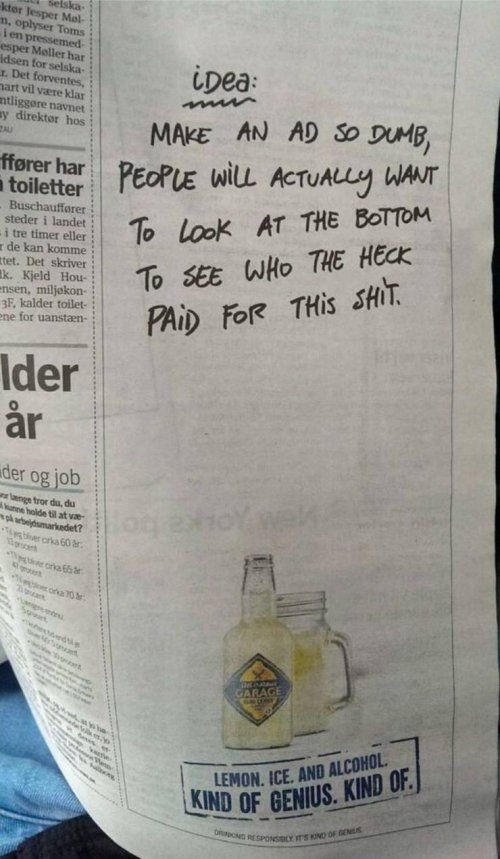 selska-
ktør Jesper Møl-
n, oplyser Toms
i en pressemed-
esper Møller har
idsen for selska-
r. Det forventes,
nart vil være klar
ntliggøre navnet
ny direktør hos
ZAU
ffører har
toiletter
Buschauffører
steder i landet
i tre timer eller
r de kan komme
ttet. Det skriver
lk. Kjeld Hou-
ensen, miljøkon-
3F, kalder toilet-
ene for uanstæn-
lder
år
der og job
or længe tror du, du
kunne holde til at væ-
på arbejdsmarkedet?
Til jeg bliver cirka 60 år:
procent
Til jeg bliver cirka 65 år:
procent
Til jeg bliver cirka 70 år:
procent
iDea:
MAKE AN AD SO DUMB,
PEOPLE WiLL ACTUALLy WANT
To Look AT THE BOTTOM
To SEE WHO THE HECK
PAiD FoR THiS SHiT.
GARAGE
LEMON. ICE. AND ALCOHOL.
KIND OF GENIUS. KIND OF.
DRINKING RESPONSIBLY. IT'S KIND OF GENIUS.